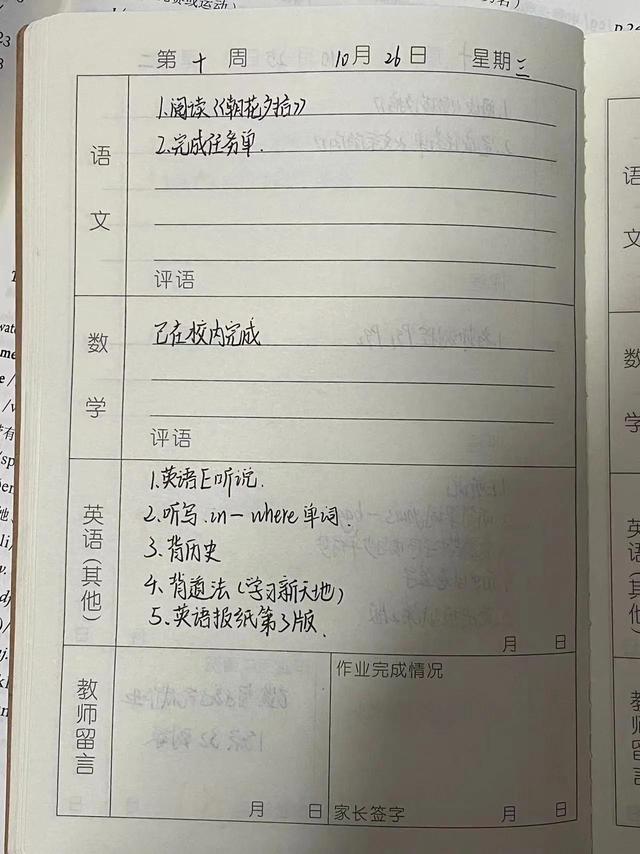 第 十 周 10月 26日 星期三
语文
1.阅读《朝花夕拾》
2.完成任务单.
评语
数学
已在校内完成
评语
英语(其他)
1.英语E听说.
2.听写.in-where单词.
3.背历史
4.背道法(学习新天地)
5.英语报纸第3版.
月 日
教师留言
月 日
作业完成情况
家长签字 月 日
语文
数学
英语(其他)
教师留言